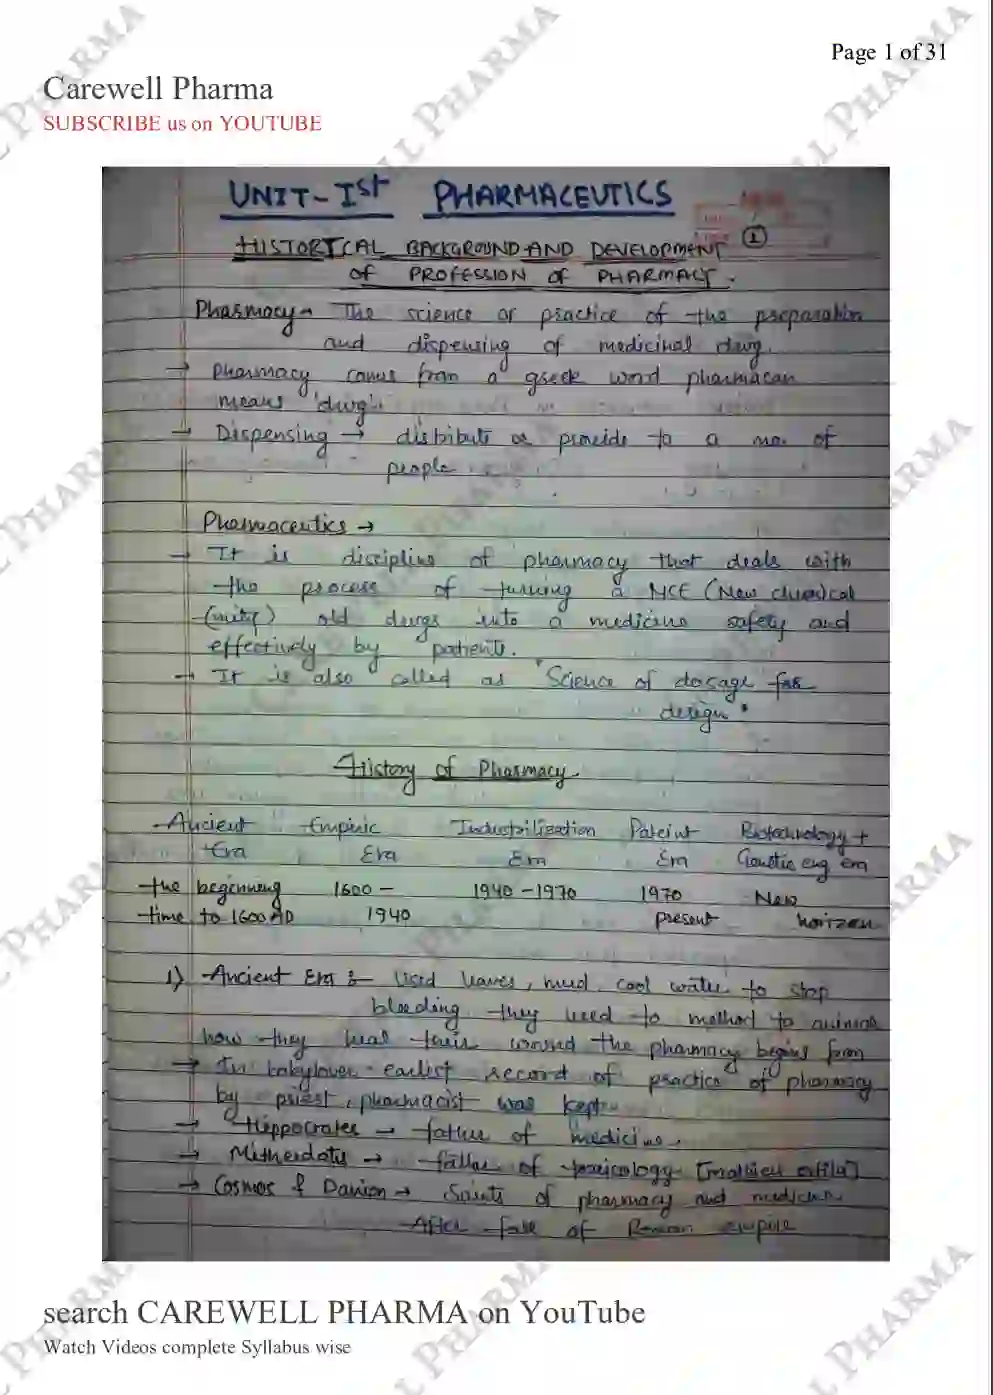 Page 1 of 31
Carewell Pharma
SUBSCRIBE us on YOUTUBE
UNIT-Ist PHARMACEUTICS
1
HISTORICAL BACKGROUND AND DEVELOPMENT
OF PROFESSION OF PHARMACY.
Pharmacy → The science or practice of the preparation
and dispensing of medicinal drug.
→ pharmacy comes from a greek word pharmacan
means 'drug'.
→ Dispensing → distribute or provide to a no. of
people
Pharmaceutics →
→ It is discipline of pharmacy that deals with
the process of turning a NCE (New chemical
entity) old drugs into a medicine safety and
effectively by patient.
→ It is also called as "Science of dosage for
design"
History of Pharmacy
Ancient Empiric Industrilization Pateint Biotechnology +
Era Era Era Era Genetic eng era
the beginneng 1600 - 1940 - 1970 1970 New
time to 1600 AD 1940 present horizen
1) Ancient Era :- Used leaves, mud, cool water to stop
bleeding they used to method to animal
how they heal their wound the pharmacy begins from
→ In babylover earliest record of practice of pharmacy
by priest, pharmacist was kept
→ Hippocrates → father of medicine.
→ Mitherdatis → father of toxicology [mathieu orfila]
→ Cosmos & Damion → Saints of pharmacy and medicine
After fall of Roman empire
search CAREWELL PHARMA on YouTube
Watch Videos complete Syllabus wise